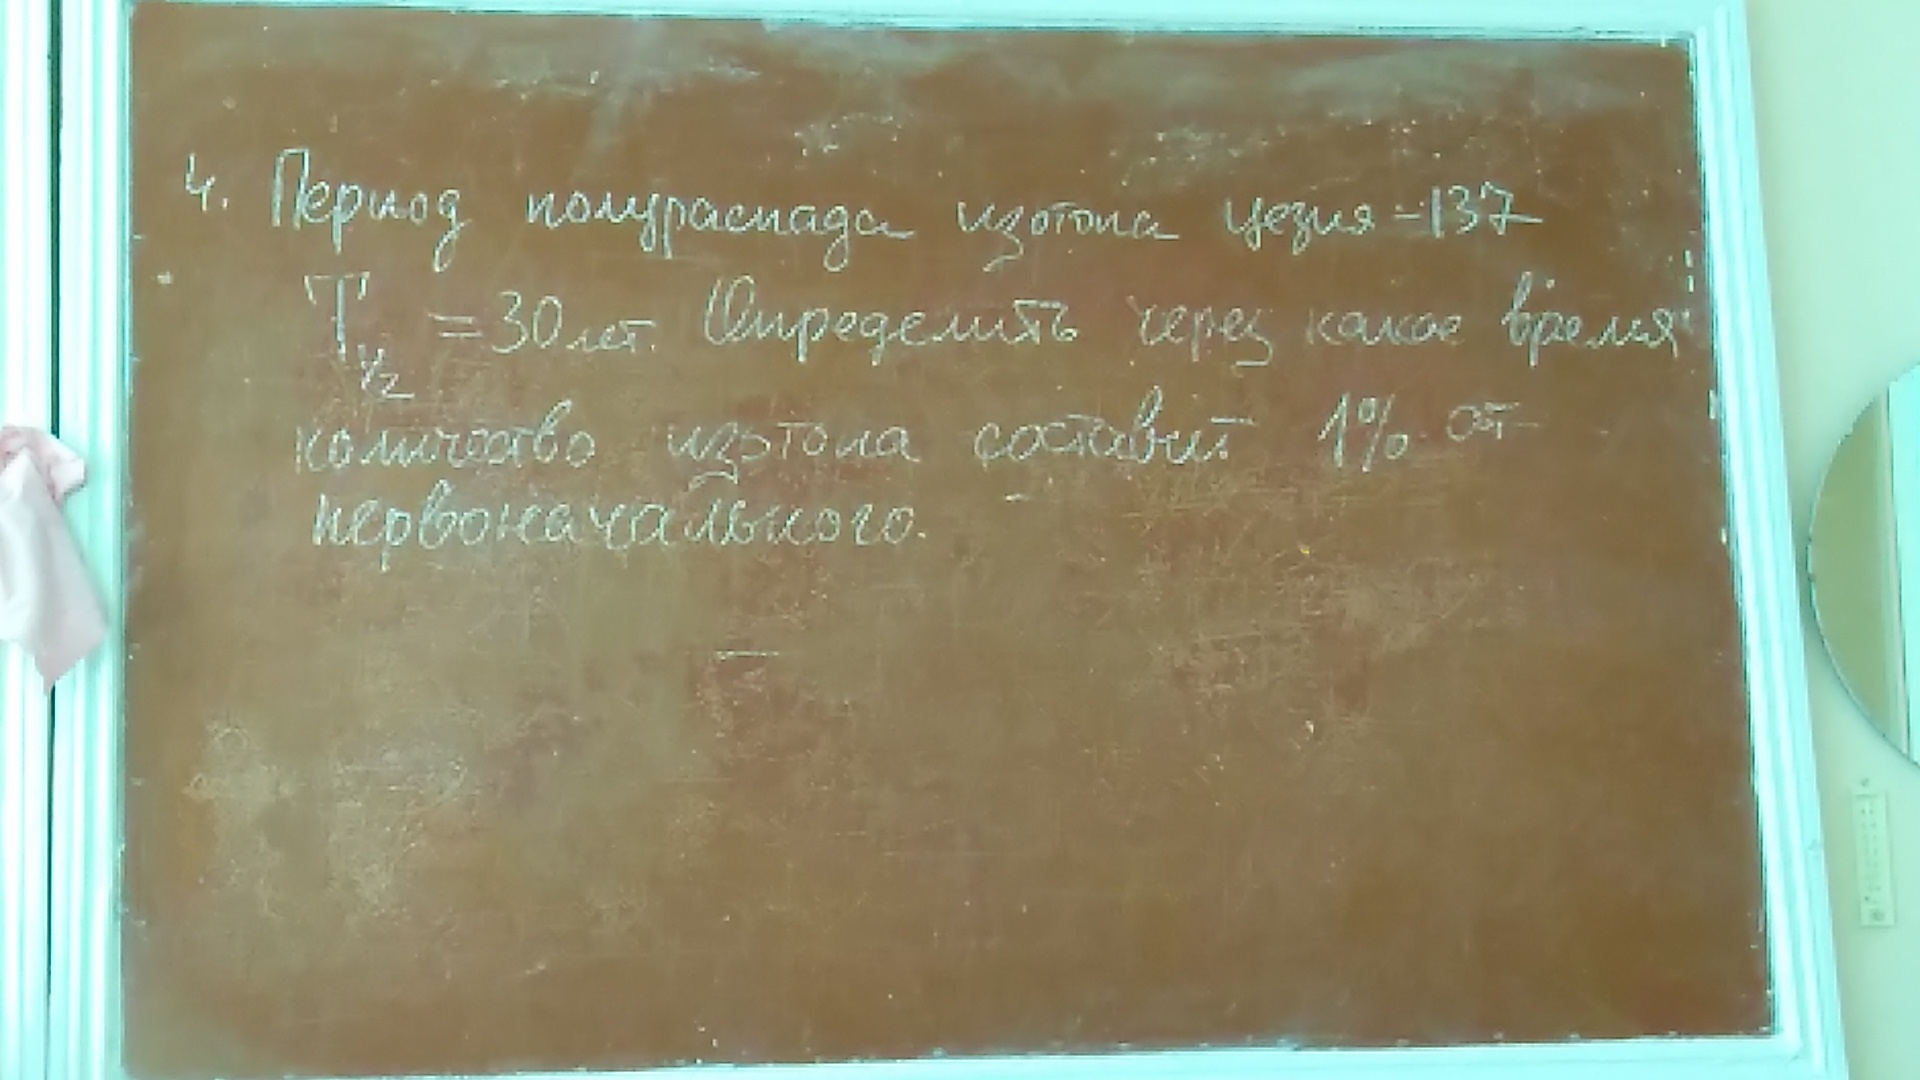 4. Период полураспада изотопа цезия-137
T1/2 = 30 лет. Определить через какое время
количество изотопа составит 1% от
первоначального.